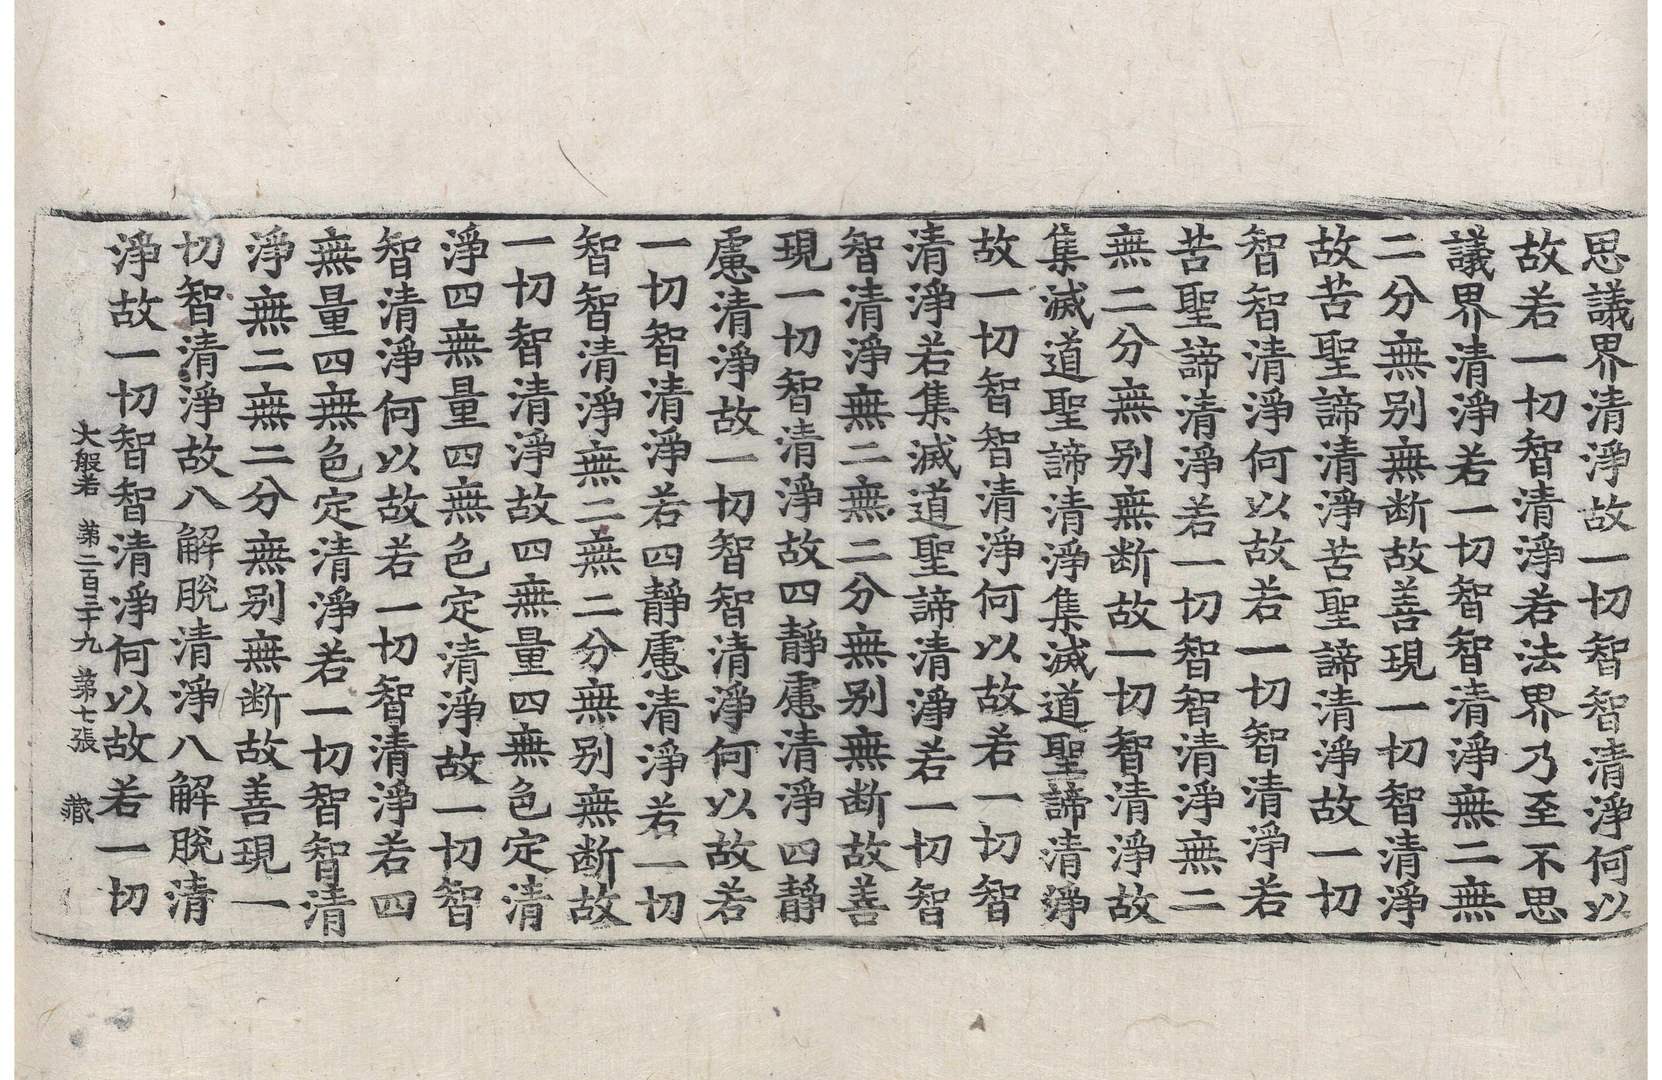 思議界清淨故一切智智清淨何以
故若一切智清淨若法界乃至不思
議界清淨若一切智智清淨無二無
二分無别無断故善現一切智清淨
故苦聖諦清淨苦聖諦清淨故一切
智智清淨何以故若一切智清淨若
苦聖諦清淨若一切智智清淨無二
無二分無别無断故一切智清淨故
集滅道聖諦清淨集滅道聖諦清淨
故一切智智清淨何以故若一切智
清淨若集滅道聖諦清淨若一切智
智清淨無二無二分無别無断故善
現一切智清淨故四靜慮清淨四靜
慮清淨故一切智智清淨何以故若
一切智清淨若四靜慮清淨若一切
智智清淨無二無二分無别無断故
一切智清淨故四無量四無色定清
淨四無量四無色定清淨故一切智
智清淨何以故若一切智清淨若四
無量四無色定清淨若一切智智清
淨無二無二分無别無断故善現一
切智清淨故八解脫清淨八解脫清
淨故一切智智清淨何以故若一切
大般若 第二百三十九 第七張 藏